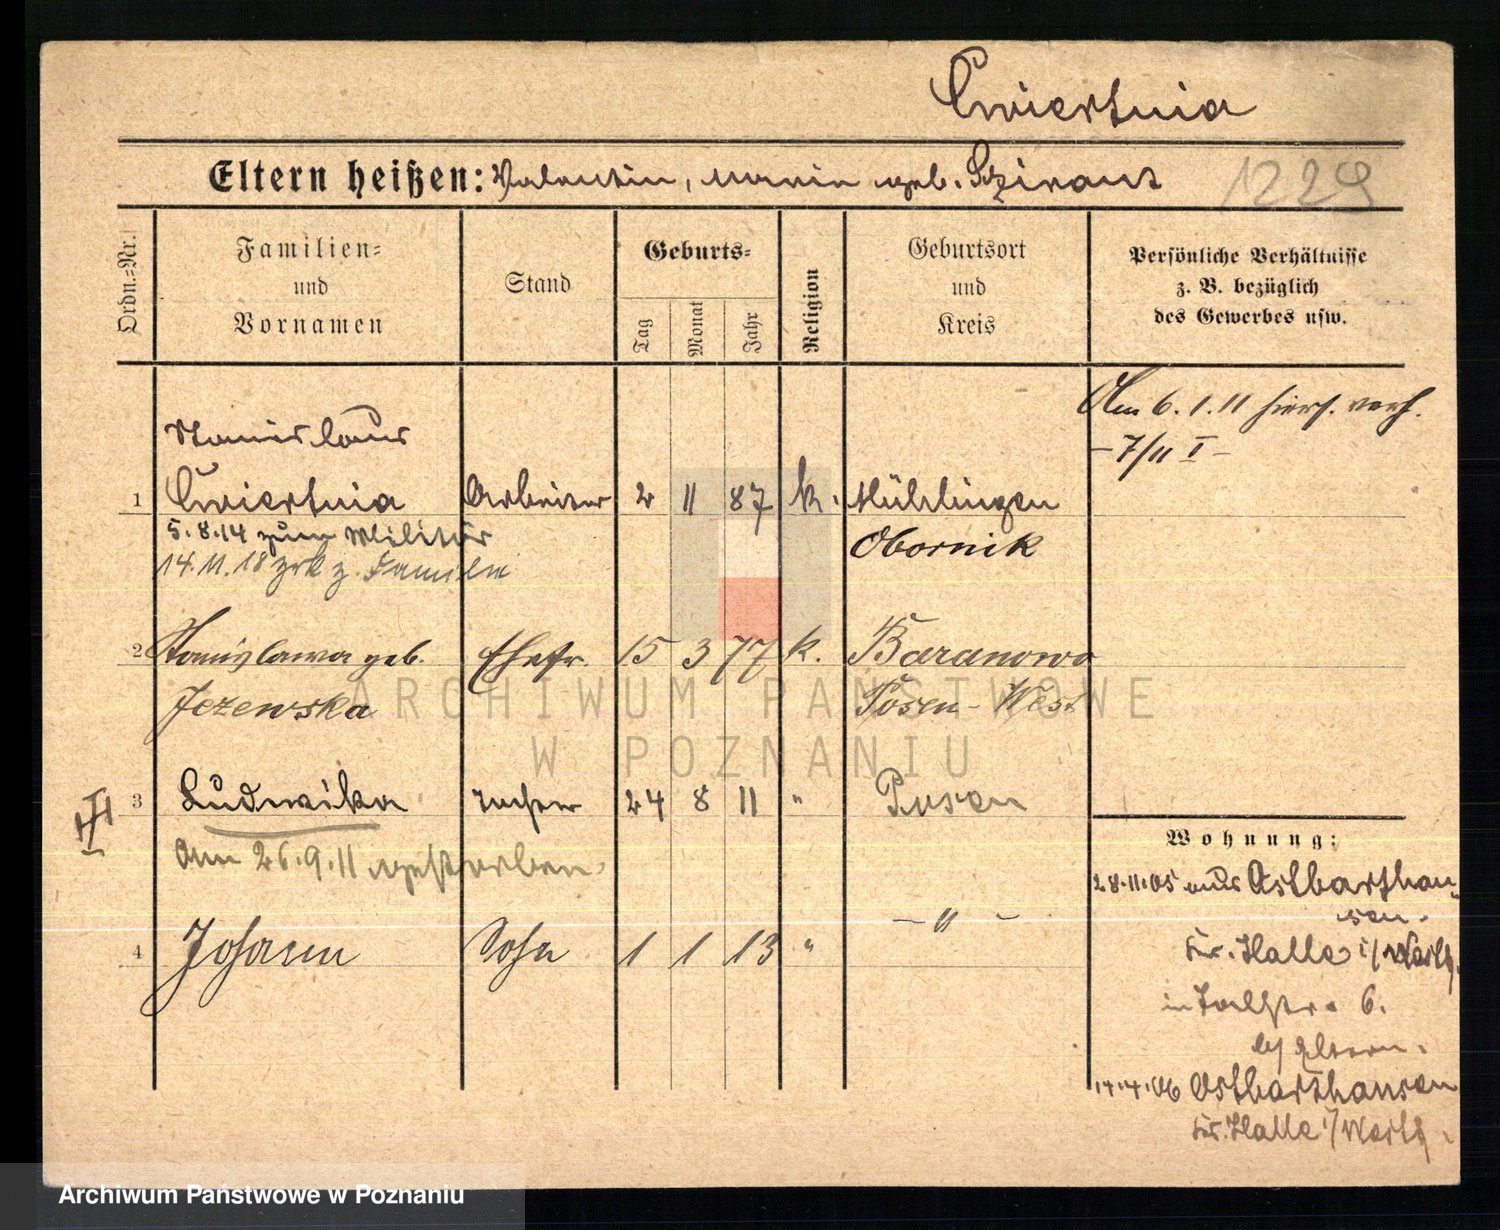 Cwiertnia
Eltern heißen: Valentin, Maria geb. Szirant
1229
Ordn.-Nr.
Familien-
und
Vornamen
Stand
Geburts-
Tag
Monat
Jahr
Religion
Geburtsort
und
Kreis
Persönliche Verhältnisse
z. B. bezüglich
des Gewerbes usw.
Am 6.1.11 hiers. verh.
- 7/11 I -
Stanislaus
1 Cwiertnia Arbeiter 2 11 87 k. Mühlingen
5.8.14 zum Militär Obornik
14.11.18 zrk z. Familie
2 Stanislawa geb. Ehefr. 15 3 77 k. Baranowo
Jezewska Posen-West
ARCHIWUM PAŃSTWOWE
W POZNANIU
3 Ludwika Tochter 24 8 11 " Posen
Am 26.9.11 gestorben.
4 Johann Sohn 1 1 13 " - " -
Wohnung:
28.11.05 aus Ostbarthau-
sen.
Kr. Halle i/Westf.
6.
bei Eltern.
14.4.06 Ostbarthausen
Kr. Halle i/Westf.
Archiwum Państwowe w Poznaniu